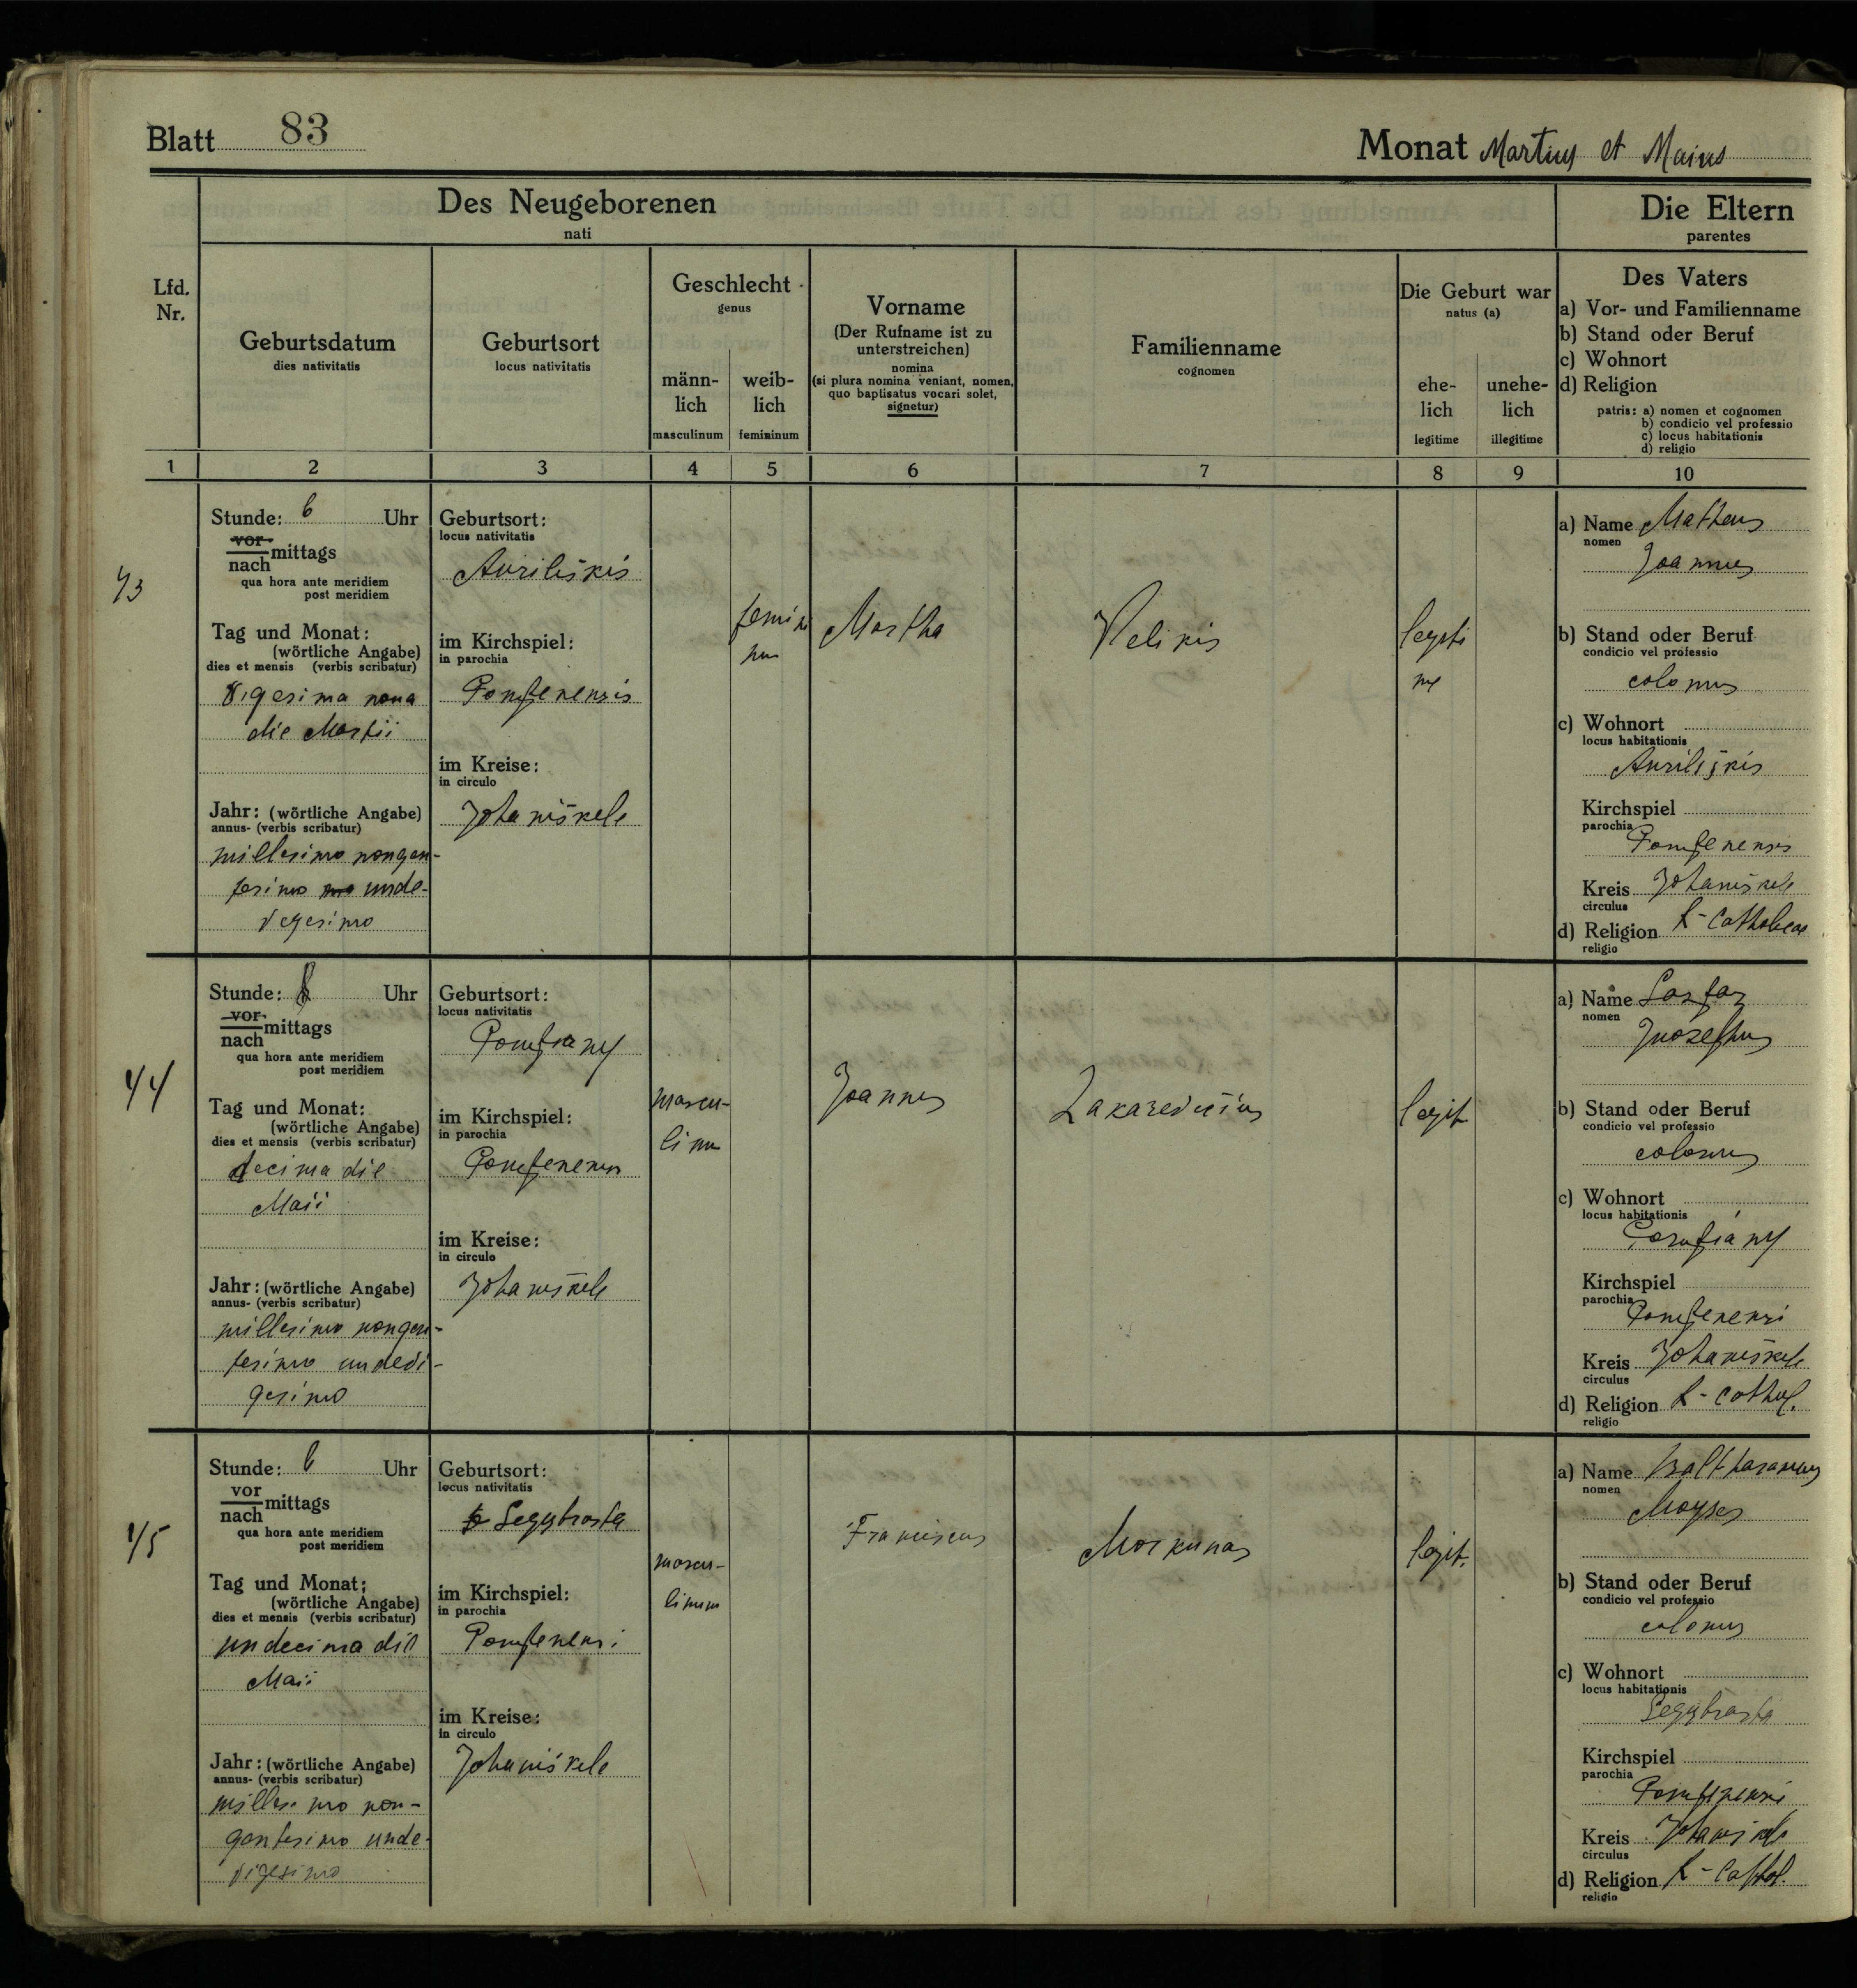 Blatt 83
Monat Martius et Maius
Des Neugeborenen
nati
Die Eltern
parentes
Lfd.
Nr.
Geburtsdatum
dies nativitatis
Geburtsort
locus nativitatis
Geschlecht
genus
männ-
lich
masculinum
weib-
lich
femininum
Vorname
(Der Rufname ist zu
unterstreichen)
nomina
(si plura nomina veniant, nomen,
quo baptisatus vocari solet,
signetur)
Familienname
cognomen
Die Geburt war
natus (a)
ehe-
lich
legitime
unehe-
lich
illegitime
Des Vaters
a) Vor- und Familienname
b) Stand oder Beruf
c) Wohnort
d) Religion
patris: a) nomen et cognomen
b) condicio vel professio
c) locus habitationis
d) religio
1 2 3 4 5 6 7 8 9 10
43
Stunde: 6 Uhr
vor
nach mittags
qua hora ante meridiem
post meridiem
Tag und Monat:
(wörtliche Angabe)
dies et mensis (verbis scribatur)
Vigesima nona
die Martii
Jahr: (wörtliche Angabe)
annus- (verbis scribatur)
millesimo nongen-
tesimo unde-
vegesimo
Geburtsort:
locus nativitatis
Auriliškis
im Kirchspiel:
in parochia
im Kreise:
in circulo
Johaniškele
femini
num
Martha
Velikis
legiti
me
a) Name Matheus
nomen
Joannes
b) Stand oder Beruf
condicio vel professio
colonus
c) Wohnort
locus habitationis
Auriliškis
Kirchspiel
parochia
Kreis Johaniškele
circulus
d) Religion R-Catholicae
religio
44
Stunde: Uhr
vor
nach mittags
qua hora ante meridiem
post meridiem
Tag und Monat:
(wörtliche Angabe)
dies et mensis (verbis scribatur)
decima die
Maii
Jahr: (wörtliche Angabe)
annus- (verbis scribatur)
millesimo nongen-
tesimo undevi-
gesimo
Geburtsort:
locus nativitatis
im Kirchspiel:
in parochia
im Kreise:
in circulo
Johaniškele
mascu-
linum
Joannes
legit
a) Name
nomen
Juozephus
b) Stand oder Beruf
condicio vel professio
colonus
c) Wohnort
locus habitationis
Kirchspiel
parochia
Kreis Johaniškele
circulus
d) Religion R-Cathol.
religio
45
Stunde: 6 Uhr
vor
nach mittags
qua hora ante meridiem
post meridiem
Tag und Monat:
(wörtliche Angabe)
dies et mensis (verbis scribatur)
undecima die
Maii
Jahr: (wörtliche Angabe)
annus- (verbis scribatur)
millesimo non-
gentesimo unde-
vigesimo
Geburtsort:
locus nativitatis
im Kirchspiel:
in parochia
im Kreise:
in circulo
Johaniškele
mascu-
linum
Franciscus
Morkunas
legit.
a) Name
nomen
Moyses
b) Stand oder Beruf
condicio vel professio
colonus
c) Wohnort
locus habitationis
Kirchspiel
parochia
Kreis Johaniškele
circulus
d) Religion R-Cathol.
religio